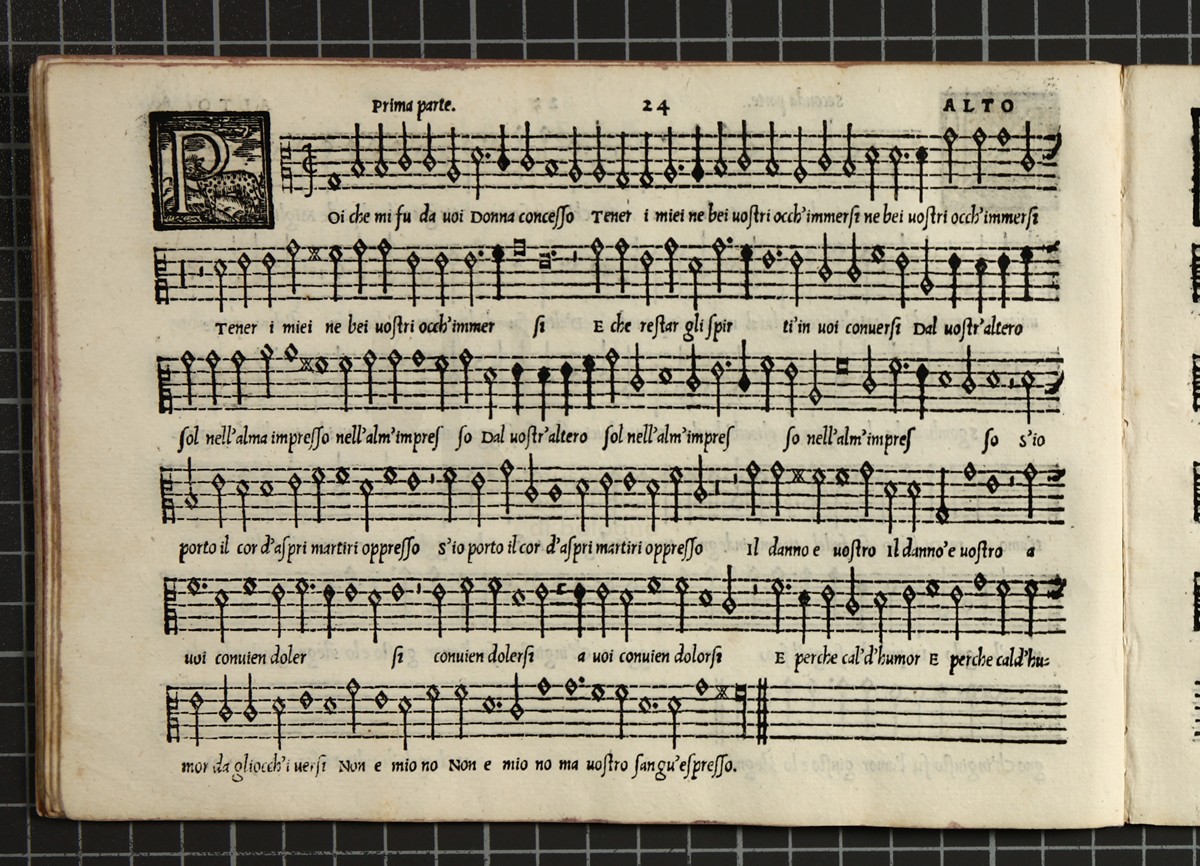 Prima parte. 24 ALTO
POi che mi fu da uoi Donna conceſſo Tener i miei ne bei uoſtri occh'immerſi ne bei uoſtri occh'immerſi
Tener i miei ne bei uoſtri occh'immer ſi E che reſtar gli ſpir ti'in uoi conuerſi Dal uoſtr'altero
ſol nell'alma impreſſo nell'alm'impreſ ſo Dal uoſtr'altero ſol nell'alm'impreſ ſo nell'alm'impreſ ſo S'io
porto il cor d'aſpri martiri oppreſſo S'io porto il cor d'aſpri martiri oppreſſo Il danno e uoſtro Il danno'e uoſtro a
uoi conuien doler ſi conuien dolerſi a uoi conuien dolorſi E perche cal'd'humor E perche cald'hu=
mor da gliocch'i uerſi Non e mio no Non e mio no ma uoſtro ſangu'eſpreſſo.